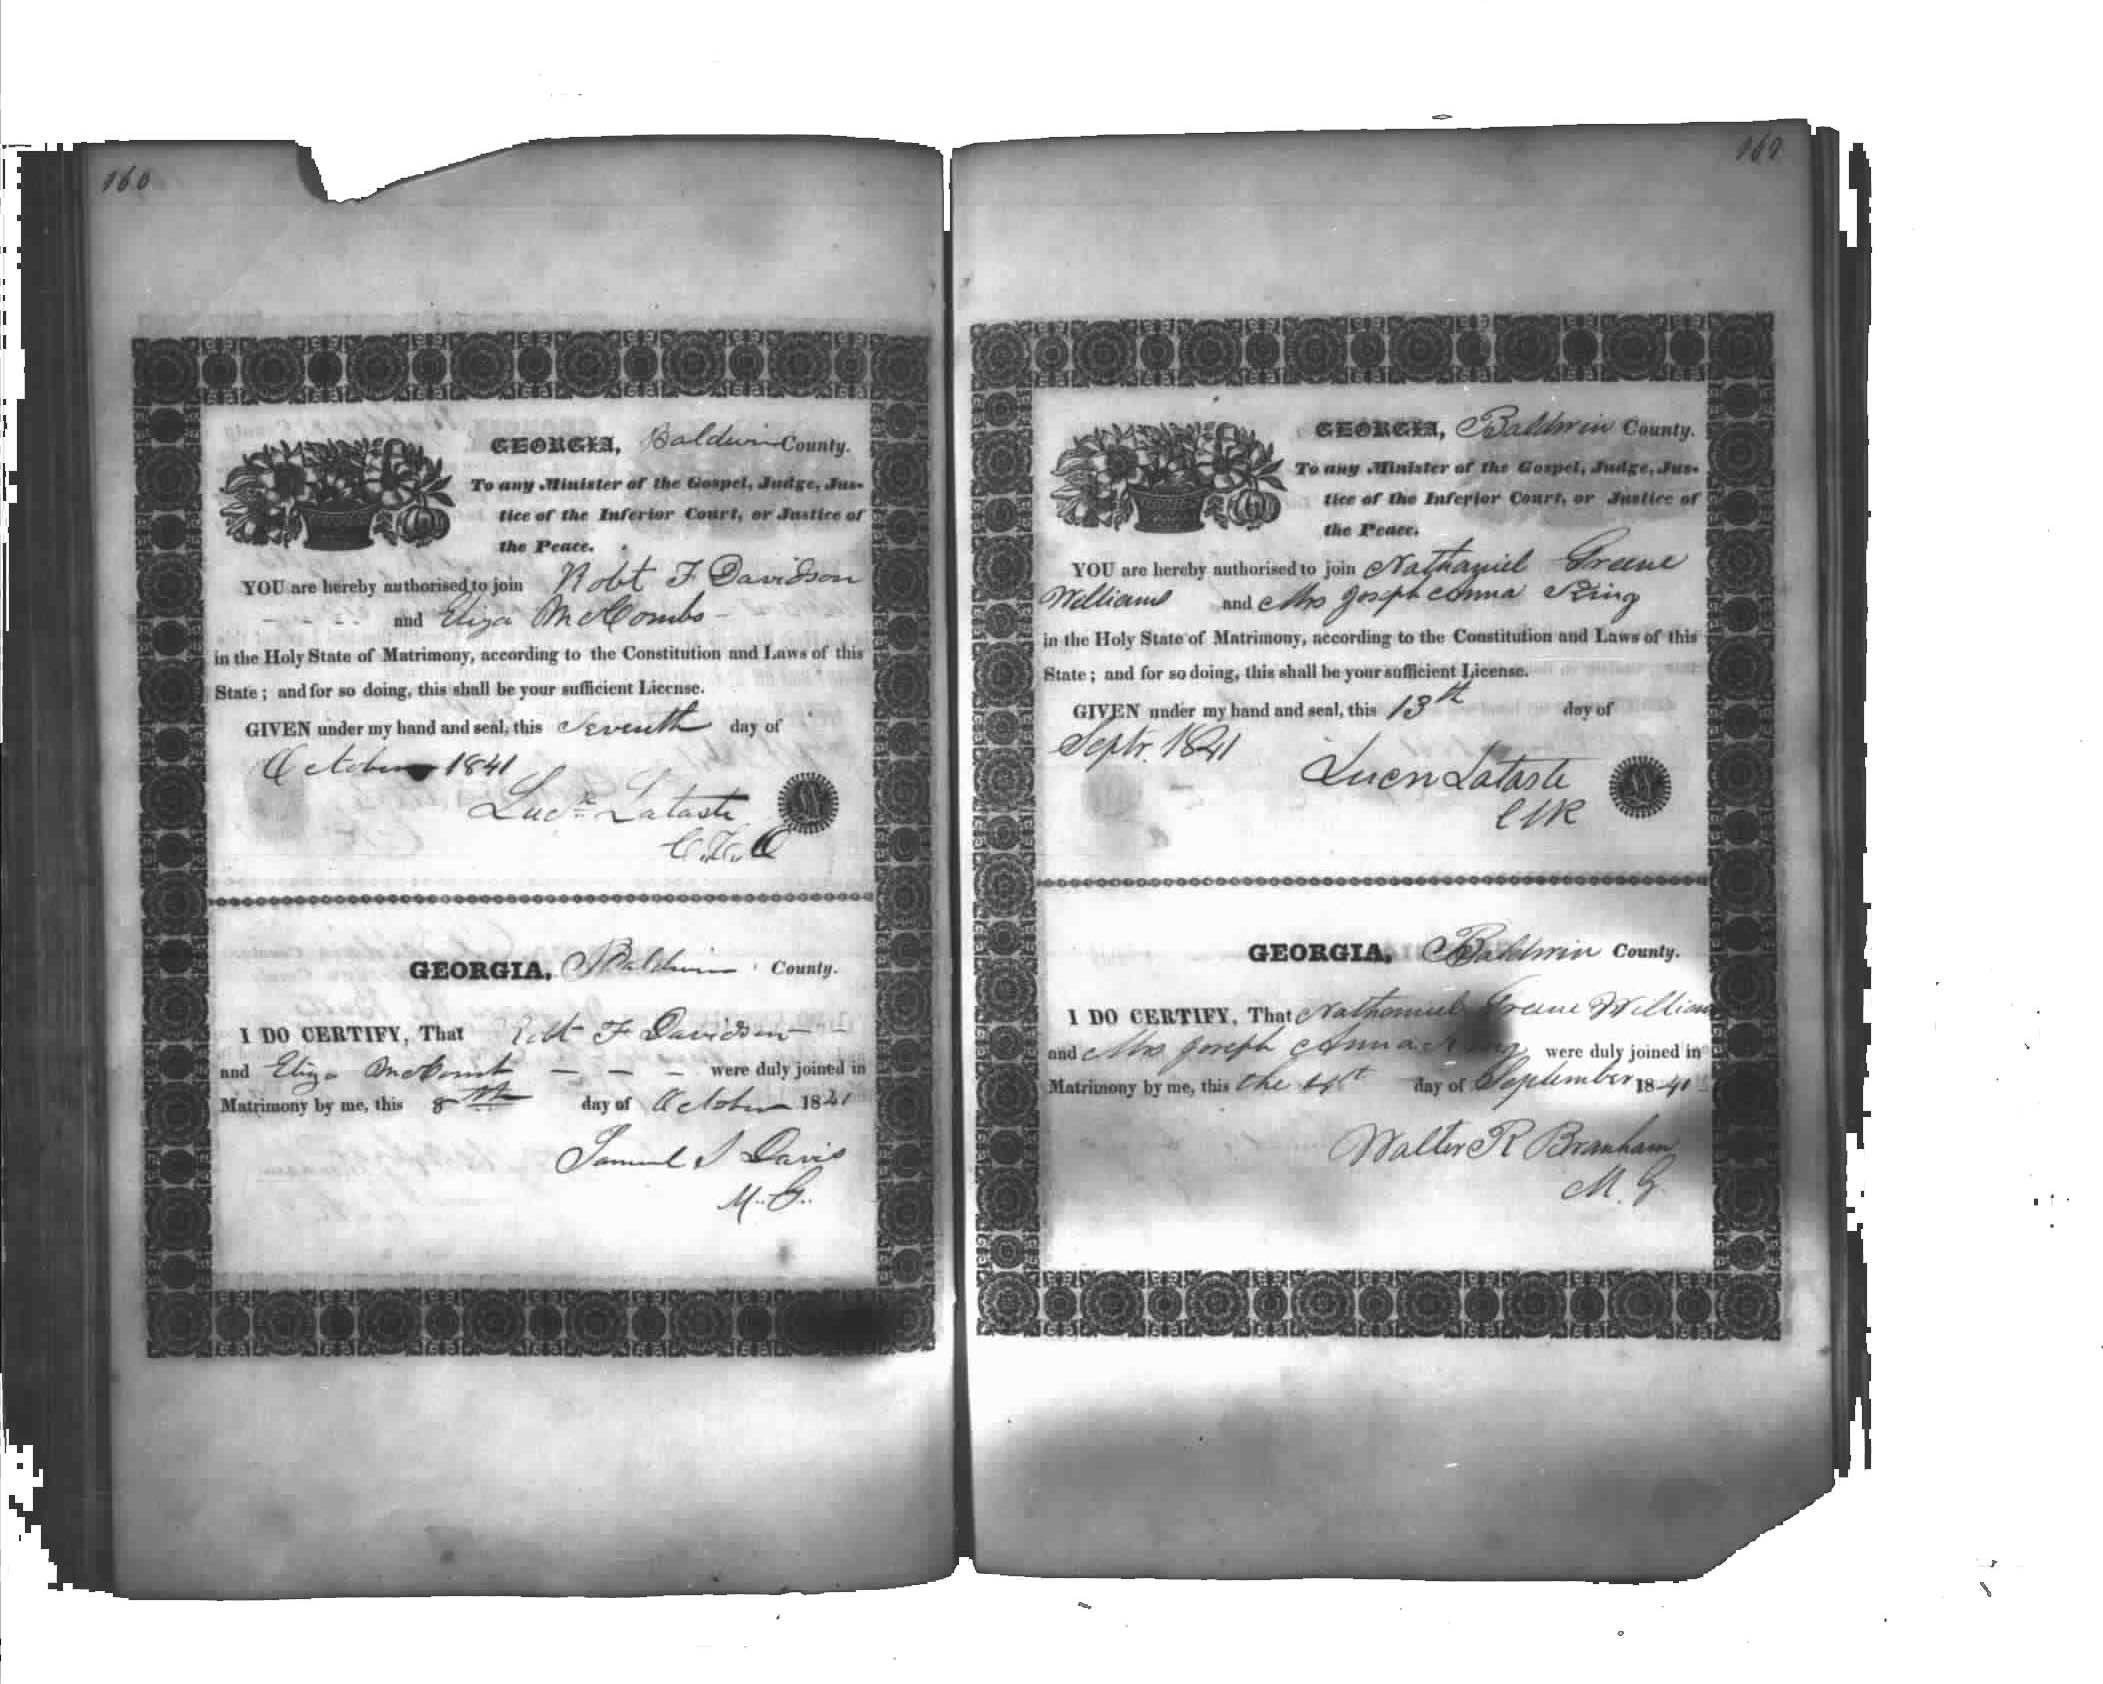 160
GEORGIA, Baldwin County.
To any Minister of the Gospel, Judge, Jus-
tice of the Inferior Court, or Justice of
the Peace.
YOU are hereby authorised to join Robt F Davidson
and Eliza McCombs
in the Holy State of Matrimony, according to the Constitution and Laws of this
State; and for so doing, this shall be your sufficient License.
GIVEN under my hand and seal, this Seventh day of
October 1841
Lucn Lataste
C.C.O
GEORGIA, Baldwin County.
I DO CERTIFY, That Robt F Davidson
and Eliza McComb were duly joined in
Matrimony by me, this 8th day of October 1841
Samuel J Davis
M.G.
161
GEORGIA, Baldwin County.
To any Minister of the Gospel, Judge, Jus-
tice of the Inferior Court, or Justice of
the Peace.
YOU are hereby authorised to join Nathaniel Greene
Williams and Mrs Joseph Anna King
in the Holy State of Matrimony, according to the Constitution and Laws of this
State; and for so doing, this shall be your sufficient License.
GIVEN under my hand and seal, this 13th day of
Septr. 1841
Lucn Lataste
Clk
GEORGIA, Baldwin County.
I DO CERTIFY, That Nathaniel Greene William
and Mrs Joseph Anna King were duly joined in
Matrimony by me, this the day of September 1841
Walter R Branham
M.G.